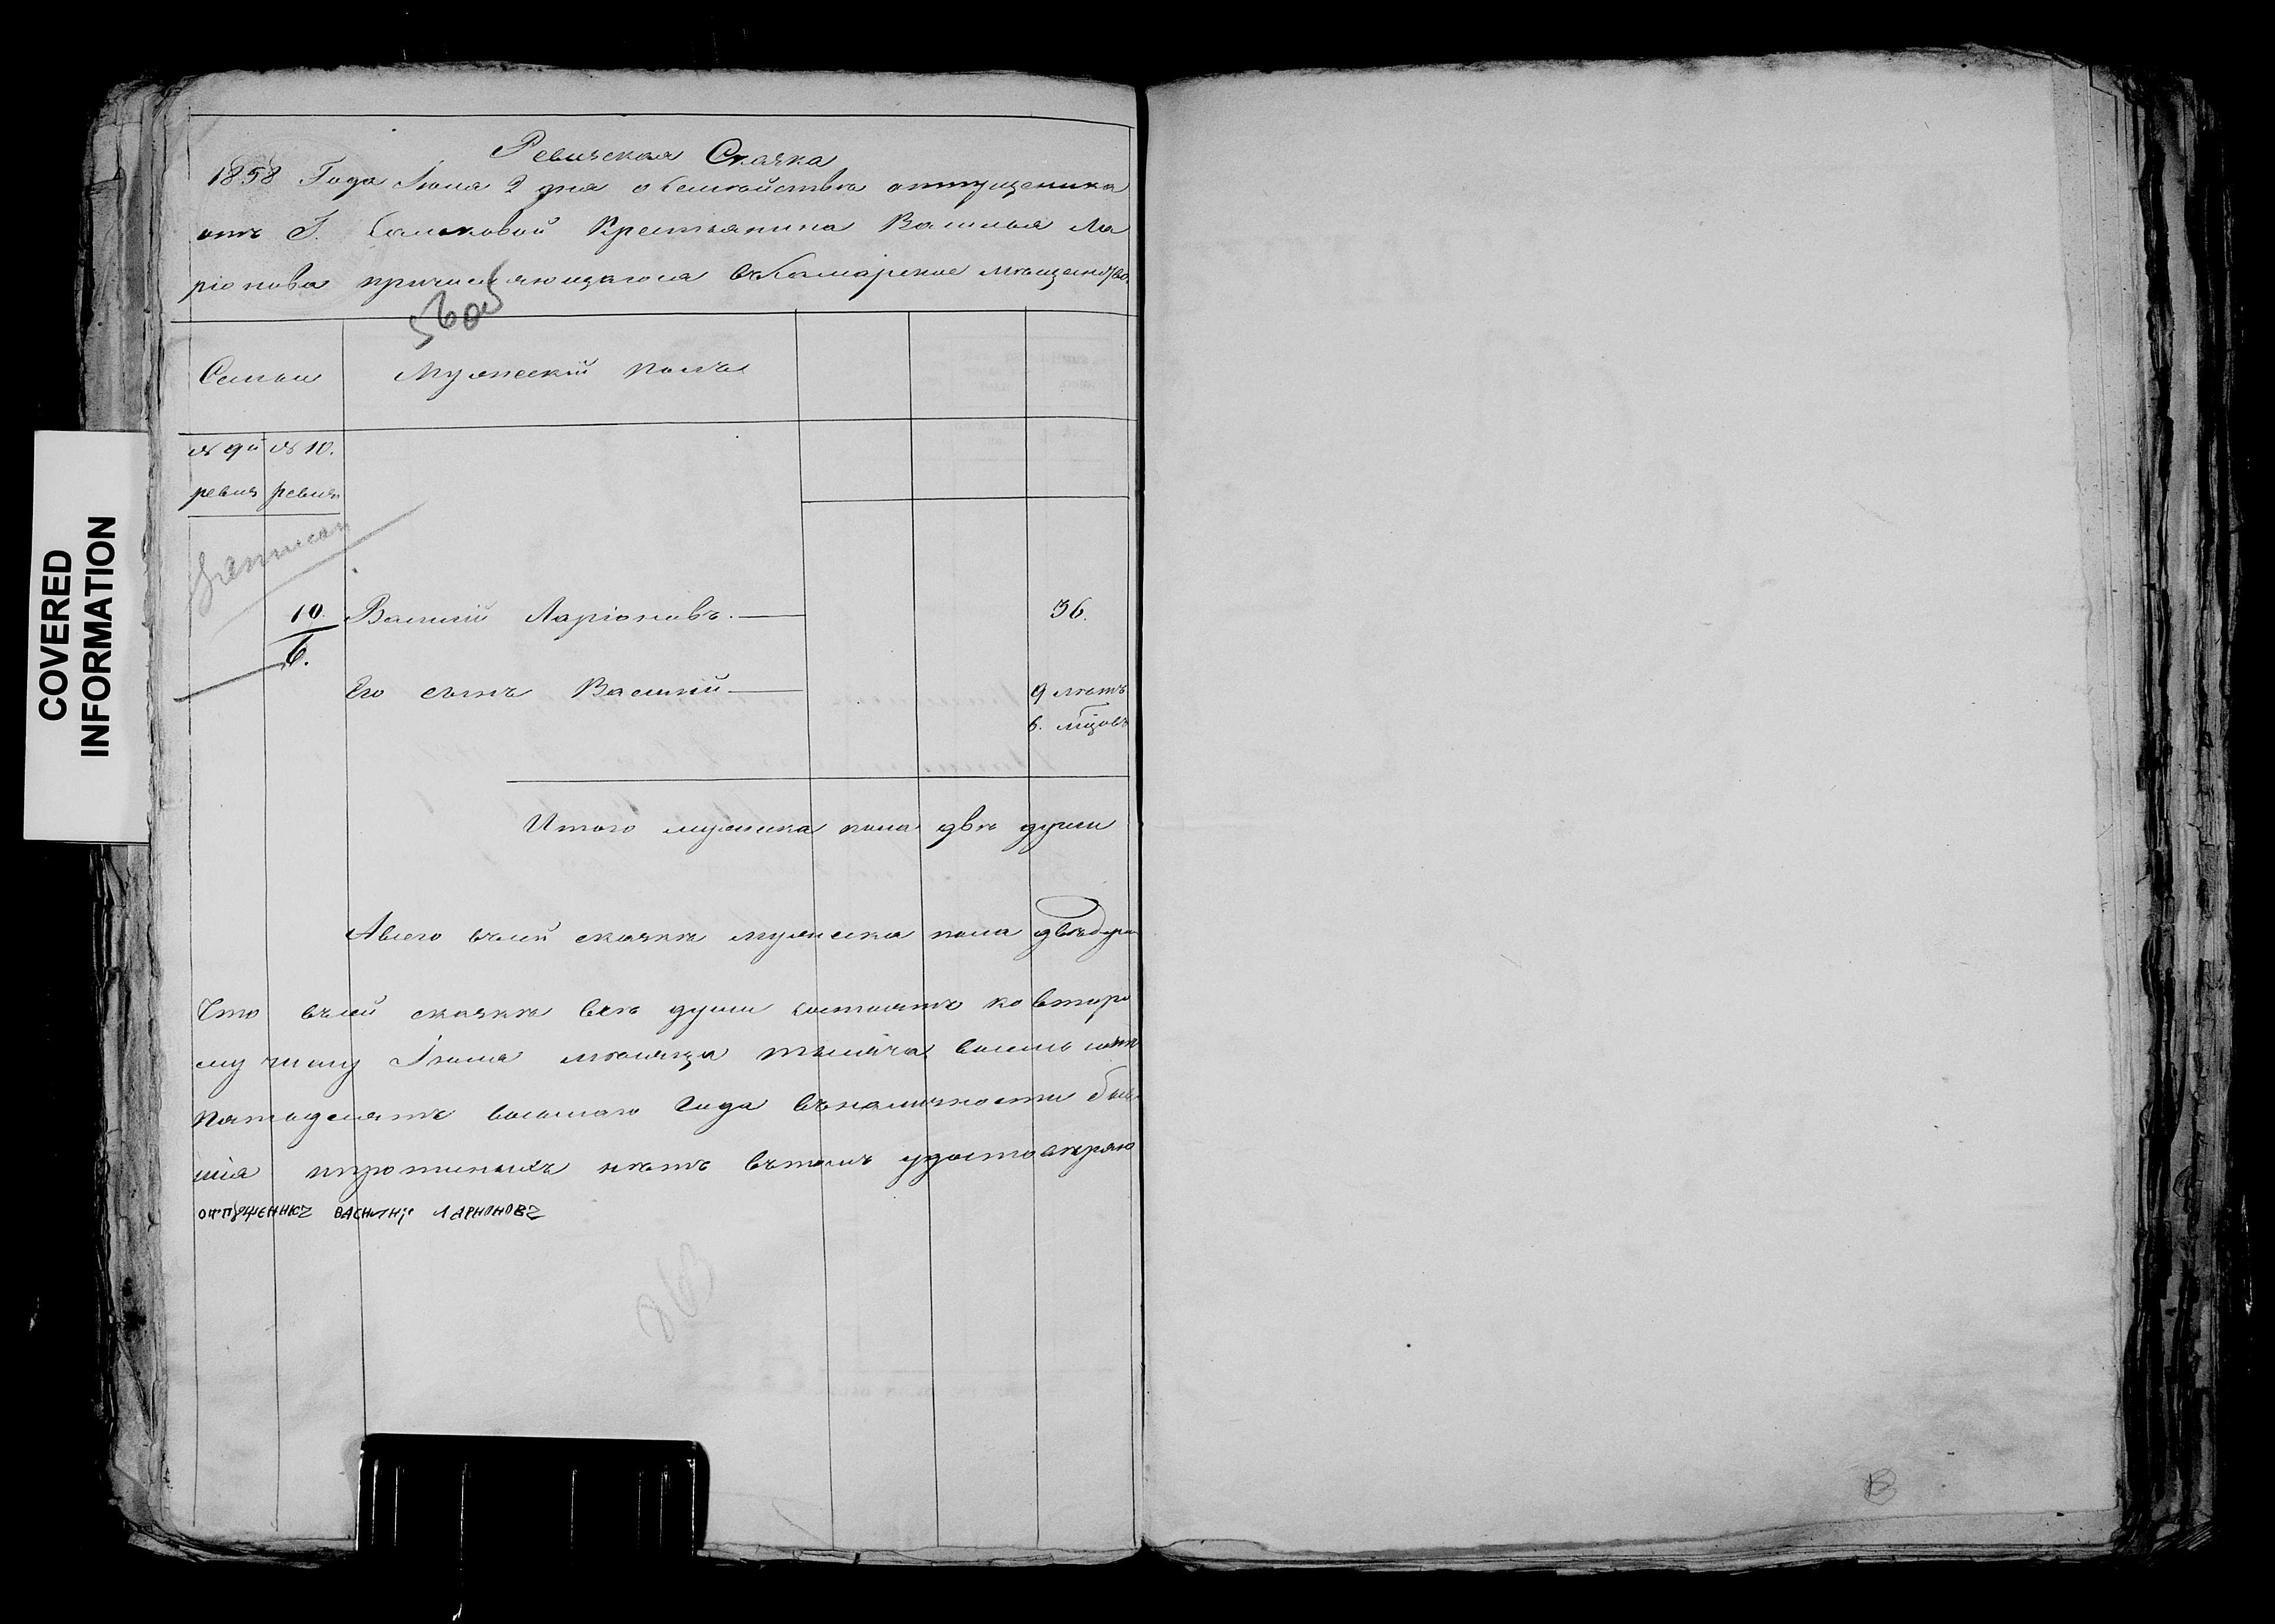 Ревизская Сказка
1858 Года Июня 2 дня о Семъйствѣ отпущеника
отъ Г. Крестьянина Василья Ла
ріонова причисляющагося въ Самарское мѣщанство
Семьи Мужескій полъ
№ 9й № 10.
ревиз ревиз
10. Василій Ларіоновъ. 36.
6.
Его сынъ Василій 9 лѣтъ
6. мцовъ
Итого мужеска пола двѣ души
А всего въ сей сказкѣ мужеска пола двѣ души
Что въ сей сказкѣ всѣ души состоятъ ко второ
му числу Іюня мѣсяца тысяча восемь сотъ
пятьдесятъ восьмаго Года въ наличности быв
шія прописныхъ нѣтъ въ томъ удостовѣряю
отпущеникъ василиӥ ларионовъ
COVERED
INFORMATION